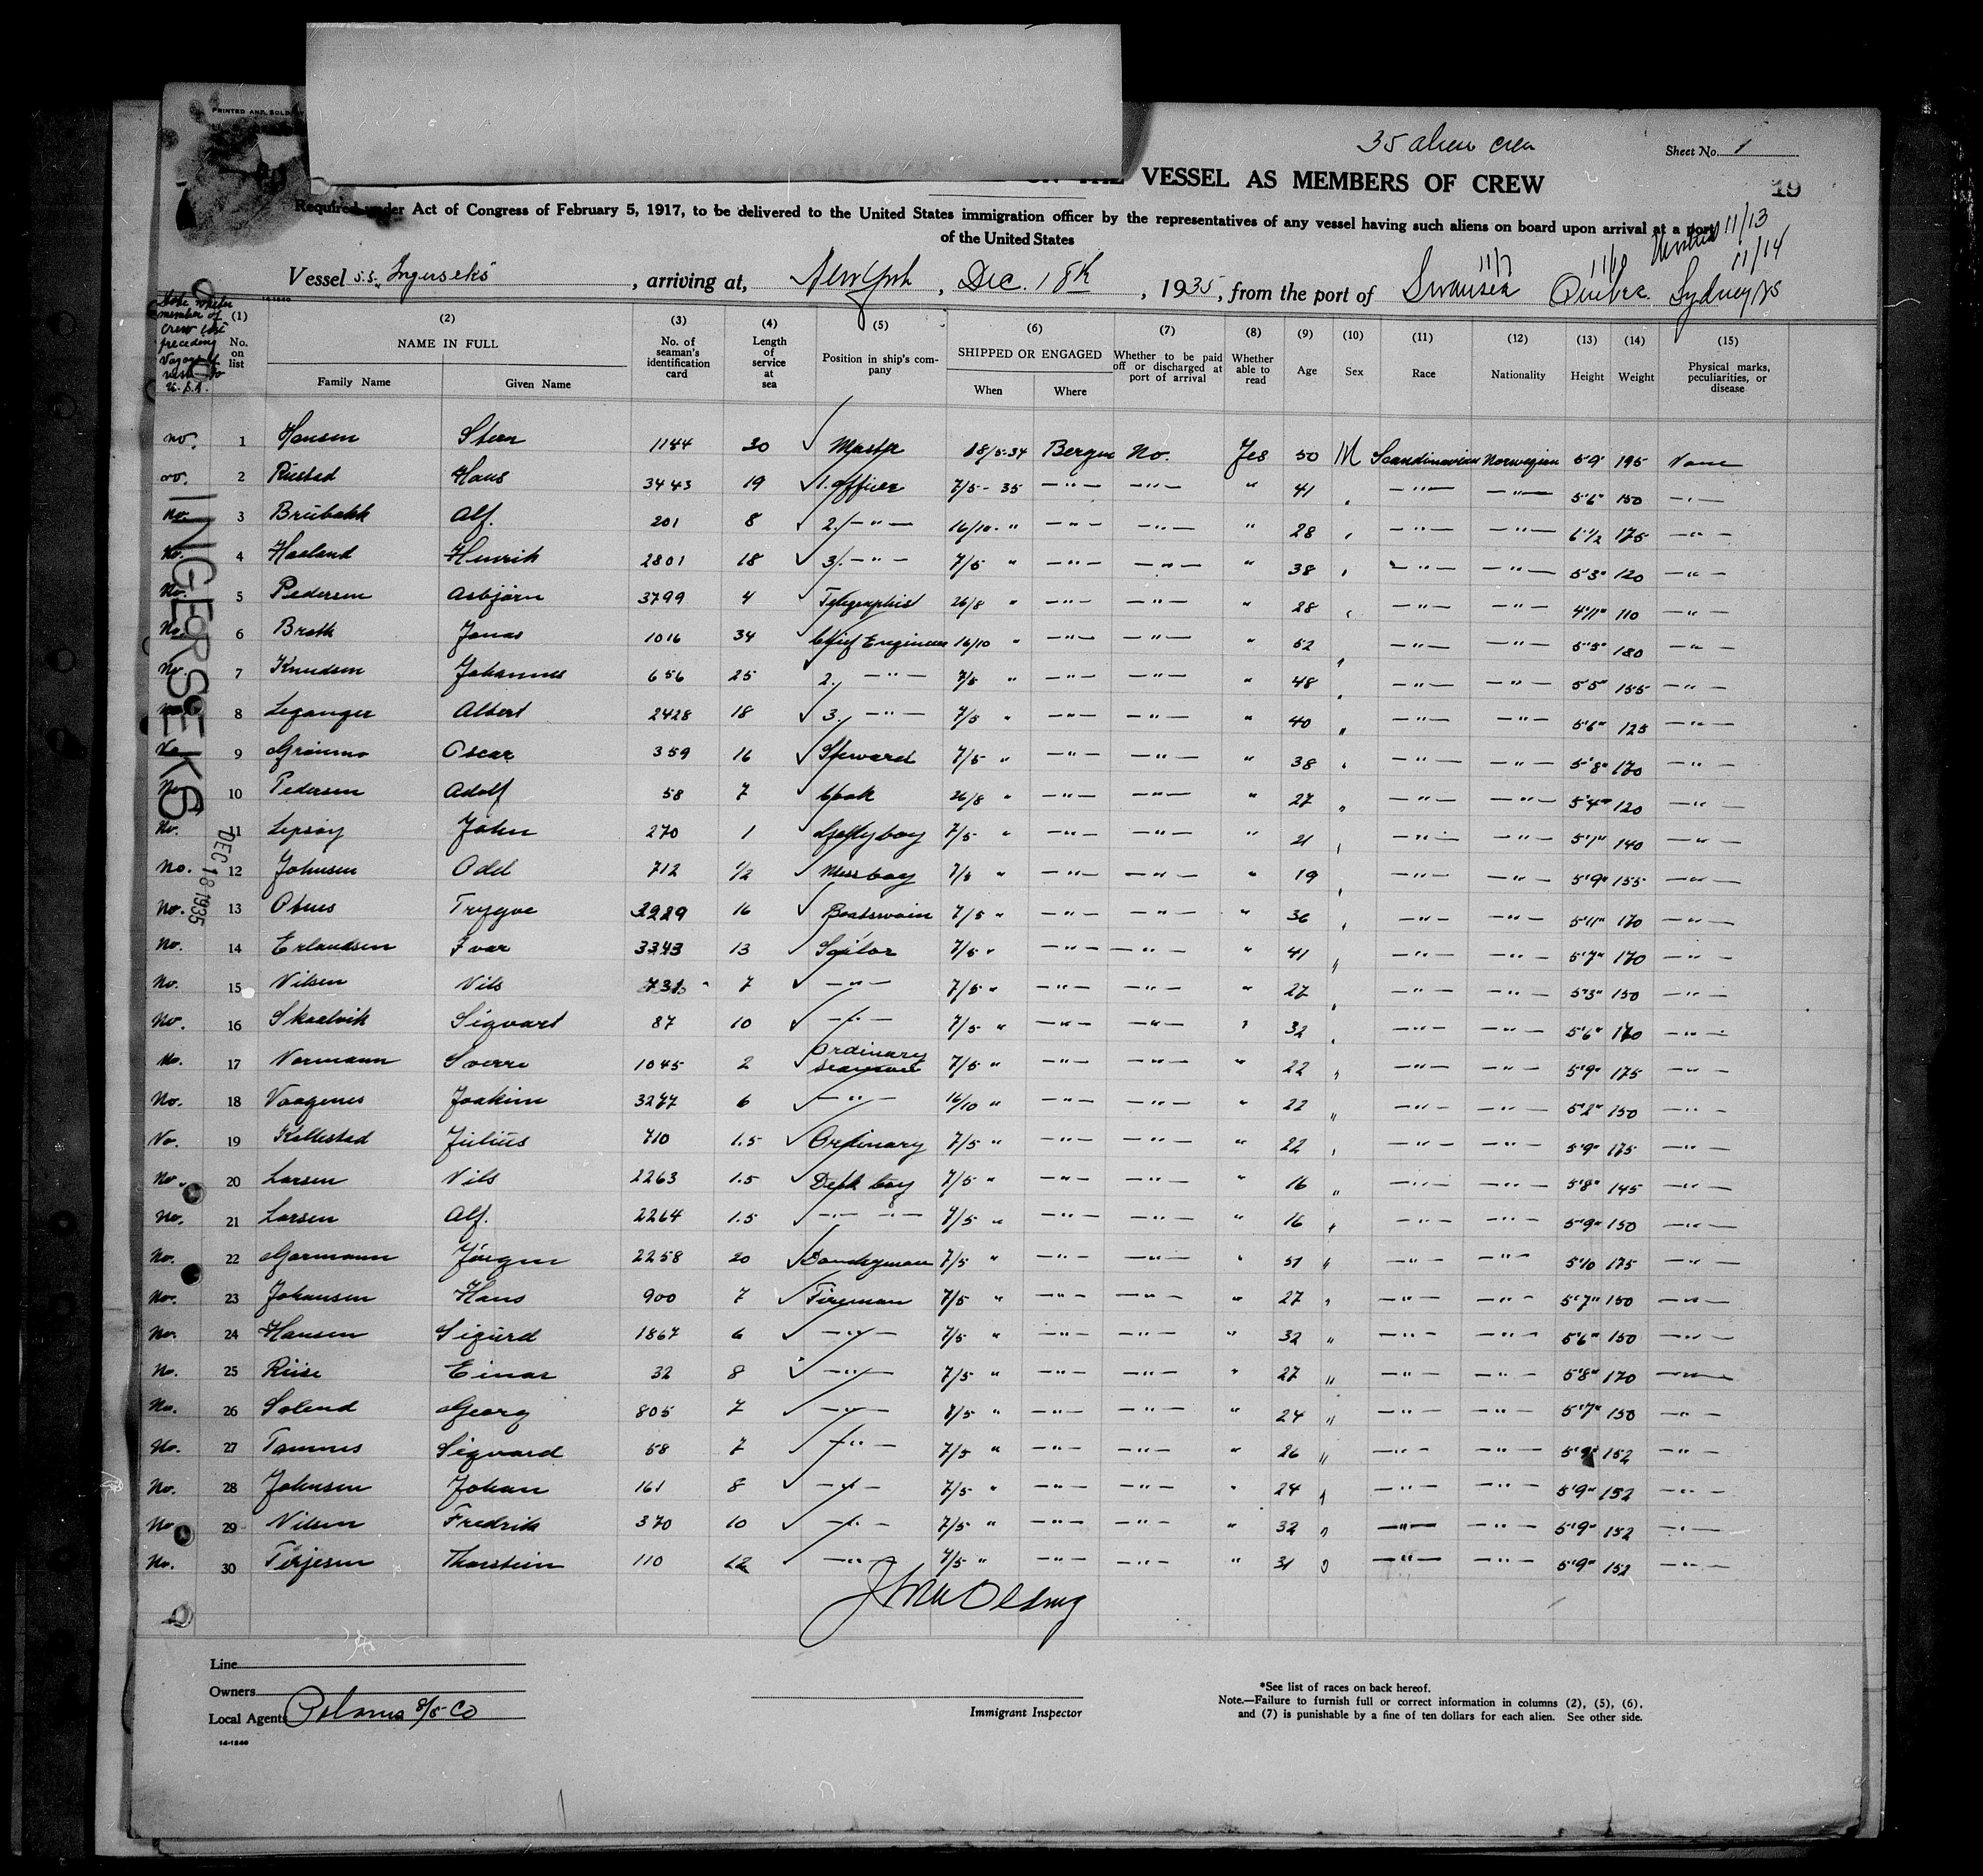 PRINTED AND SOLD
35 alien crew
Sheet No. 1
VESSEL AS MEMBERS OF CREW
19
Required under Act of Congress of February 5, 1917, to be delivered to the United States immigration officer by the representatives of any vessel having such aliens on board upon arrival at a port
of the United States
11/13
11/14
Vessel S.S. Ingerseks, arriving at, New York, Dec. 18th, 1935, from the port of Swansea 11/7 Quebec 11/10 Sydney NS
14-1240
State whether member of crew last preceding voyage of vessel to U.S.A.
(1) No. on list
(2) NAME IN FULL Family Name Given Name
(3) No. of seaman's identification card
(4) Length of service at sea
(5) Position in ship's company
(6) SHIPPED OR ENGAGED When Where
(7) Whether to be paid off or discharged at port of arrival
(8) Whether able to read
(9) Age
(10) Sex
(11) Race
(12) Nationality
(13) Height
(14) Weight
(15) Physical marks, peculiarities, or disease
INGERSEKS
DEC 18 1935
no. 1 Hansen 1144 30 ✓ Master 18/5-34 Bergen No. Yes 50 M Scandinavian Norwegian 5'9 195 None
no. 2 Rustad Hans 3443 19 ✓ 1. officer 7/5-35 —"— —"— " 41 —"— —"— 5'6" 150 —"—
No. 3 Brubakk Alf. 201 8 ✓ 2. —"— 16/10 " —"— —"— " 28 —"— —"— 6'1/2 175 —"—
No. 4 Haaland Henrik 2801 18 ✓ 3. —"— 7/5 " —"— —"— " 38 —"— —"— 5'3" 120 —"—
No. 5 Pedersen Asbjørn 3799 4 ✓ Telegraphist 26/8 " —"— —"— " 28 —"— —"— 4'11" 110 —"—
No. 6 Brath Jonas 1016 34 ✓ Chief Engineer 16/10 " —"— —"— " 52 " —"— —"— 5'5" 180 —"—
No. 7 Knudsen Johannes 656 25 ✓ 2. —"— 7/5 " —"— —"— " 48 " —"— —"— 5'5" 155 —"—
No. 8 Leganger Albert 2428 18 ✓ 3. —"— 7/5 " —"— —"— " 40 " —"— —"— 5'6" 125 —"—
No 9 Grønmo Oscar 359 16 ✓ Steward 7/5 " —"— —"— " 38 " —"— —"— 5'8" 170 —"—
No 10 Pedersen Adolf 58 7 ✓ Cook 26/8 " —"— —"— " 27 " —"— —"— 5'4" 120 —"—
No. 11 Lepsøy John 270 1 ✓ Galleyboy 7/5 " —"— —"— " 21 " —"— —"— 5'1" 140 —"—
No. 12 Johnsen Odd 712 1/2 ✓ Messboy 7/5 " —"— —"— " 19 " —"— —"— 5'9" 155 —"—
No. 13 Trygve 2929 16 ✓ Boatswain 7/5 " —"— —"— " 36 " —"— —"— 5'11" 170 —"—
No. 14 Erlandsen Ivar 3343 13 ✓ Sailor 7/5 " —"— —"— " 41 " —"— —"— 5'7" 170 —"—
No. 15 Nilsen Nils 731 7 ✓ —"— 7/5 " —"— —"— " 27 " —"— —"— 5'3" 150 —"—
No. 16 Skaelvik Sigvart 87 10 ✓ —"— 7/5 " —"— —"— " 32 " —"— —"— 5'6" 170 —"—
No. 17 Normann Sverre 1045 2 ✓ Ordinary seaman 7/5 " —"— —"— " 22 " —"— —"— 5'9" 175 —"—
No. 18 Vaagenes Joakim 3277 6 ✓ —"— 16/10 " —"— —"— " 22 " —"— —"— 5'2" 150 —"—
No. 19 Kallestad Julius 710 1.5 ✓ Ordinary 7/5 " —"— —"— " 22 " —"— —"— 5'9" 175 —"—
No. 20 Larsen Nils 2263 1.5 ✓ Deck boy 7/5 " —"— —"— " 16 " —"— —"— 5'8" 145 —"—
No. 21 Larsen Alf. 2264 1.5 ✓ —"— —"— 7/5 " —"— —"— " 16 " —"— —"— 5'9" 150 —"—
No. 22 Gormann Jørgen 2258 20 ✓ Donkeyman 7/5 " —"— —"— " 51 " —"— —"— 5'10 175 —"—
No. 23 Johansen Hans 900 7 ✓ Fireman 7/5 " —"— —"— " 27 " —"— —"— 5'7" 150 —"—
No. 24 Hansen Sigurd 1867 6 ✓ —"— 7/5 " —"— —"— " 32 " —"— —"— 5'6" 150 —"—
No. 25 Riise Einar 32 8 ✓ —"— 7/5 " —"— —"— " 27 " —"— —"— 5'8" 170 —"—
No. 26 Solend Georg 805 7 ✓ —"— 7/5 " —"— —"— " 24 " —"— —"— 5'7" 150 —"—
No. 27 Tamnes Sigvard 58 7 ✓ —"— 7/5 " —"— —"— " 26 " —"— —"— 5'9" 152 —"—
No. 28 Johnsen Johan 161 8 ✓ —"— 7/5 " —"— —"— " 24 " —"— —"— 5'9" 152 —"—
No 29 Nilsen Fredrik 370 10 ✓ —"— 7/5 " —"— —"— " 32 " —"— —"— 5'9" 152 —"—
No. 30 Terjesen Thorstein 110 12 ✓ —"— 7/5 " —"— —"— " 31 " —"— —"— 5'9" 152 —"—
Line
Owners
Local Agents S/S Co
14-1240
Immigrant Inspector
*See list of races on back hereof.
Note.—Failure to furnish full or correct information in columns (2), (5), (6),
and (7) is punishable by a fine of ten dollars for each alien. See other side.